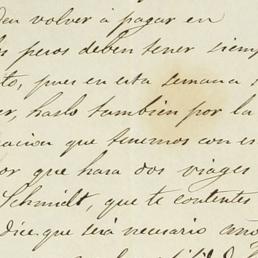 den volver á pagar en
os pesos deben tener siem
to, pues en esta semana
er, hazlo tambien por la
acion que tenemos con es
or que hara dos viages
Schmidt, que te contentes
dice que será necesario